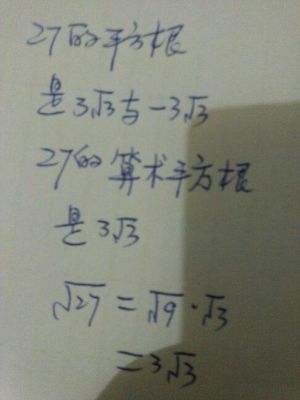 27的平方根
是3√3与-3√3
27的算术平方根
是3√3
√27=√9·√3
=3√3